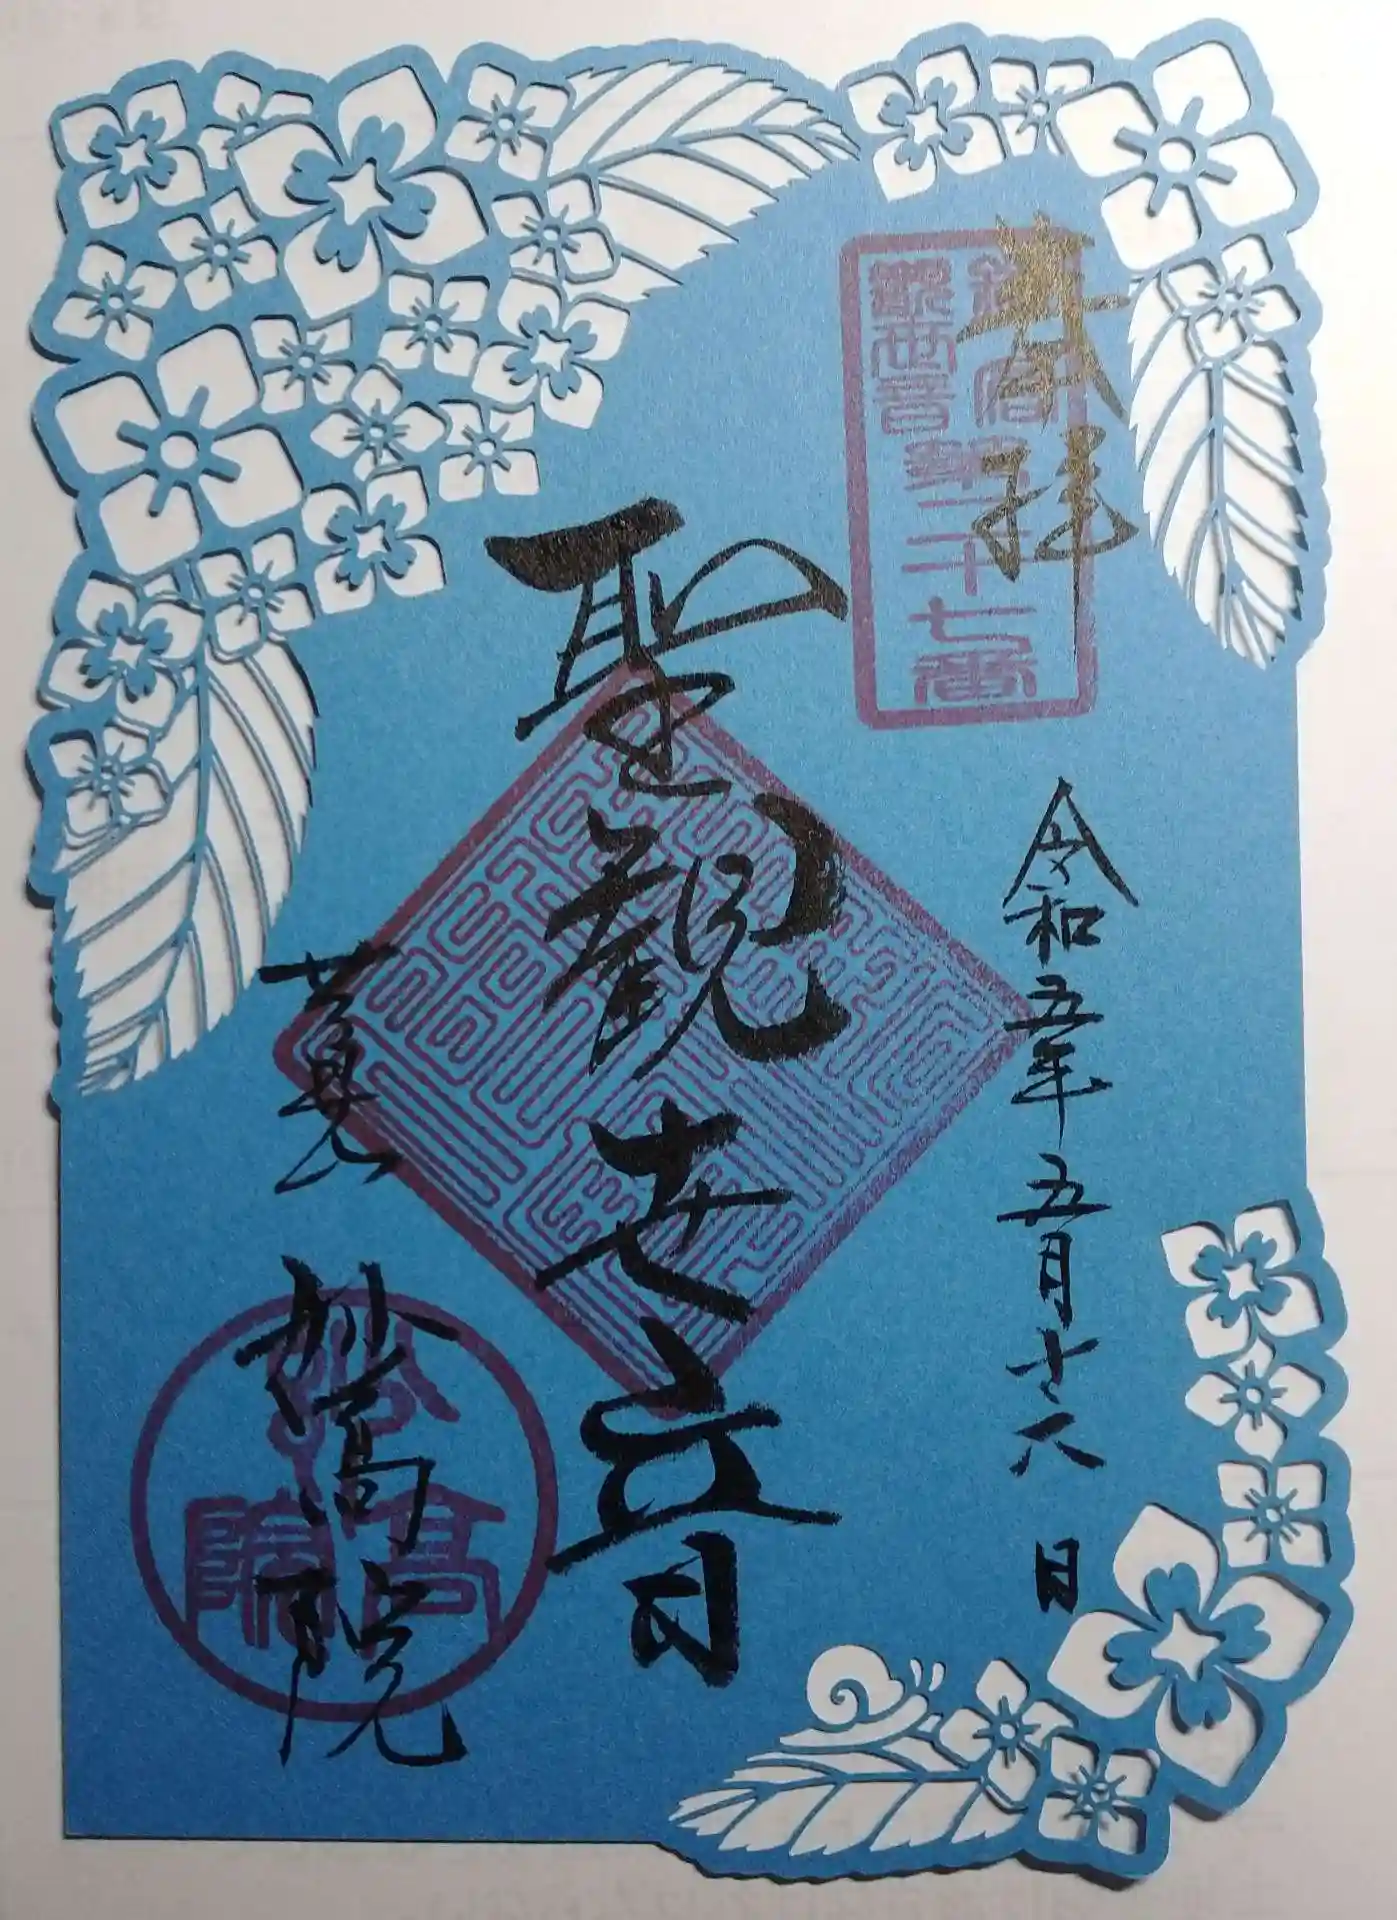 奉拝
鎌倉
観世音
第二十七番
令和五年五月十六日
聖観世音
妙高院
妙高院